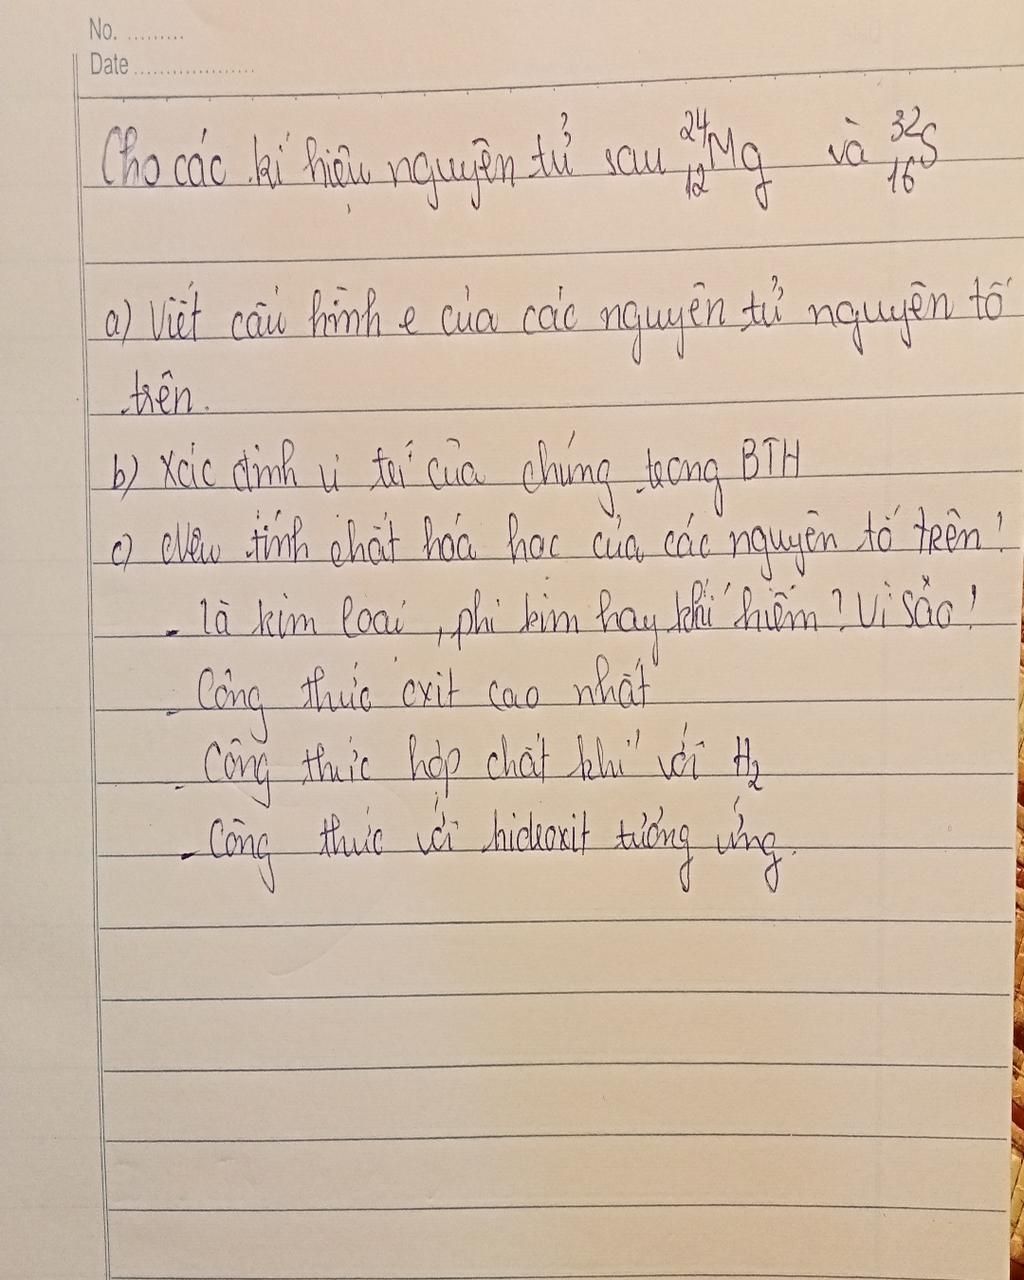 No. .........
Date ...................
Cho các kí hiệu nguyên tử sau ²⁴₁₂Mg và ³²₁₆S
a) Viết cấu hình e của các nguyên tử nguyên tố
trên.
b) Xác định vị trí của chúng trong BTH
c) Nêu tính chất hoá học của các nguyên tố trên!
- là kim loại, phi kim hay khí hiếm? Vì sao!
- Công thức oxit cao nhất
- Công thức hợp chất khí với H₂
- Công thức với hidroxit tương ứng.